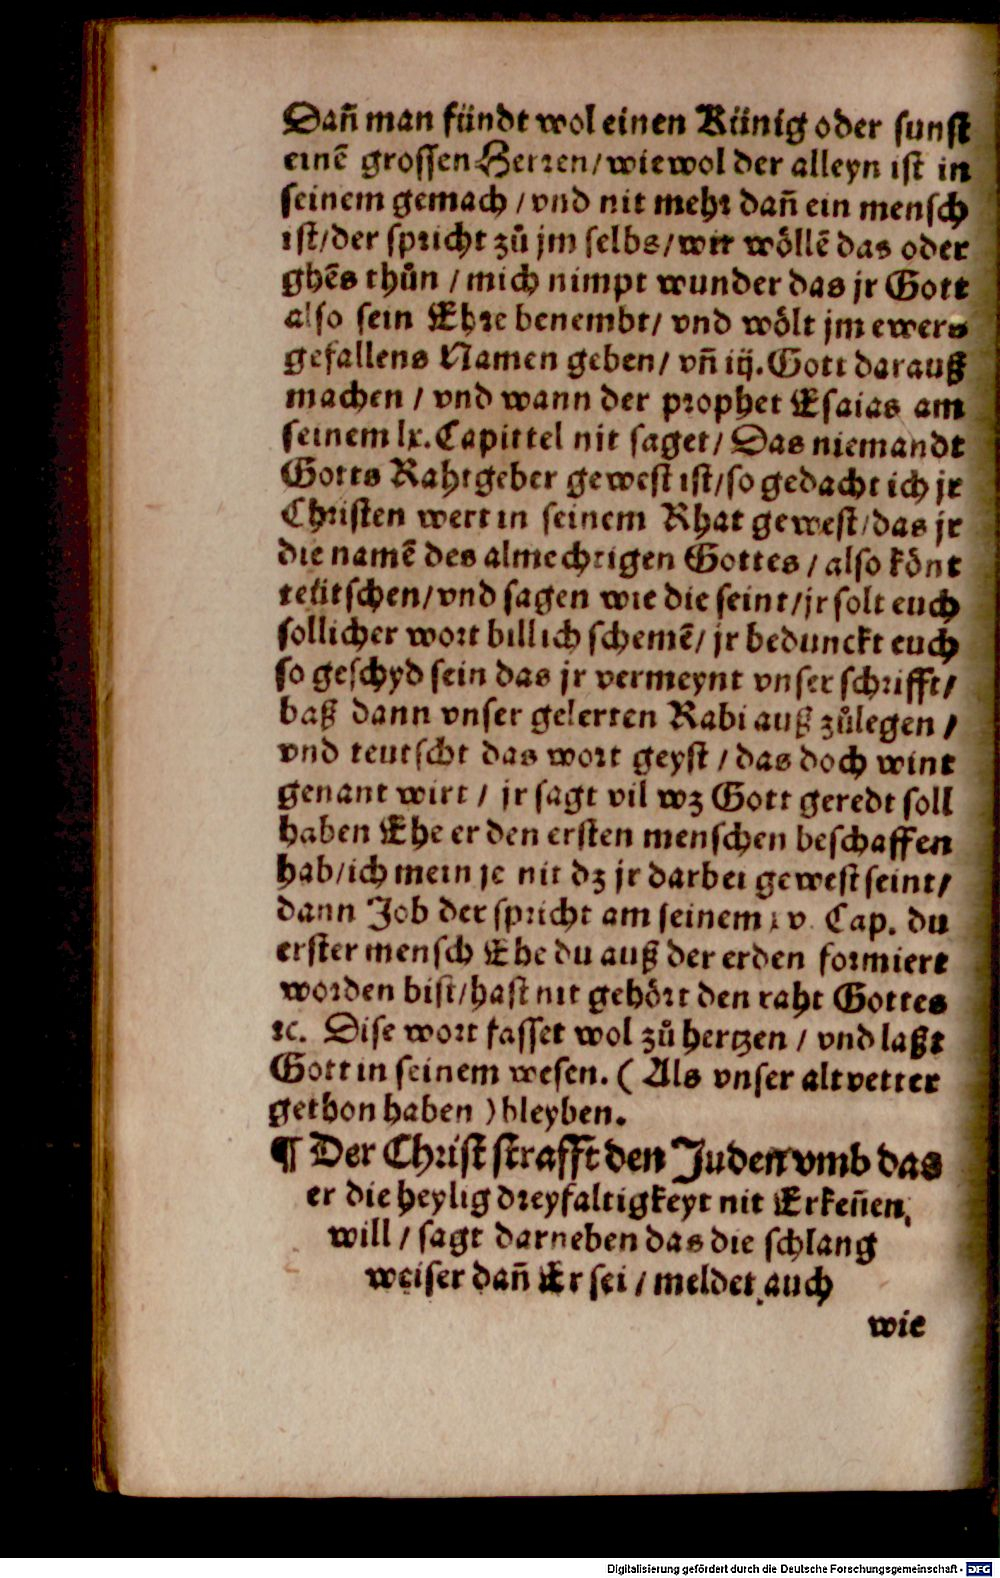 Dañ man fündt wol einen Künig oder sunst
einẽ grossen Herren/wiewol der alleyn ist in
seinem gemach / vnd nit mehr dañ ein mensch
ist/der spricht zů jm selbs/wir wöllẽ das oder
ghẽs thůn / mich nimpt wunder das jr Gott
also sein Ehre benembt/ vnd wölt jm ewers
gefallens Namen geben/ vñ iij. Gott darauß
machen / vnd wann der prophet Esaias am
seinem lx. Capittel nit saget/ Das niemandt
Gotts Rahtgeber gewest ist/so gedacht ich jr
Christen wert in seinem Rhat gewest/das jr
die namẽ des almechtigen Gottes / also könt
teütschen/vnd sagen wie die seint/jr solt euch
sollicher wort billich schemẽ/ jr bedunckt euch
so geschyd sein das jr vermeynt vnser schrifft/
baß dann vnser gelerten Rabi auß zůlegen /
vnd teutscht das wort geyst / das doch wint
genant wirt / jr sagt vil wz Gott geredt soll
haben Ehe er den ersten menschen beschaffen
hab/ich mein je nit dz jr darbei gewest seint/
dann Job der spricht am seinem xv. Cap. du
erster mensch Ehe du auß der erden formiert
worden bist/hast nit gehört den raht Gottes
ꝛc. Dise wort fasset wol zů hertzen / vnd laßt
Gott in seinem wesen. ( Als vnser altvetter
gethon haben ) bleyben.
¶ Der Christ strafft den Juden vmb das
er die heylig dreyfaltigkeyt nit Erkeñen
will / sagt darneben das die schlang
weiser dañ Er sei / meldet auch
wie
Digitalisierung gefördert durch die Deutsche Forschungsgemeinschaft - DFG